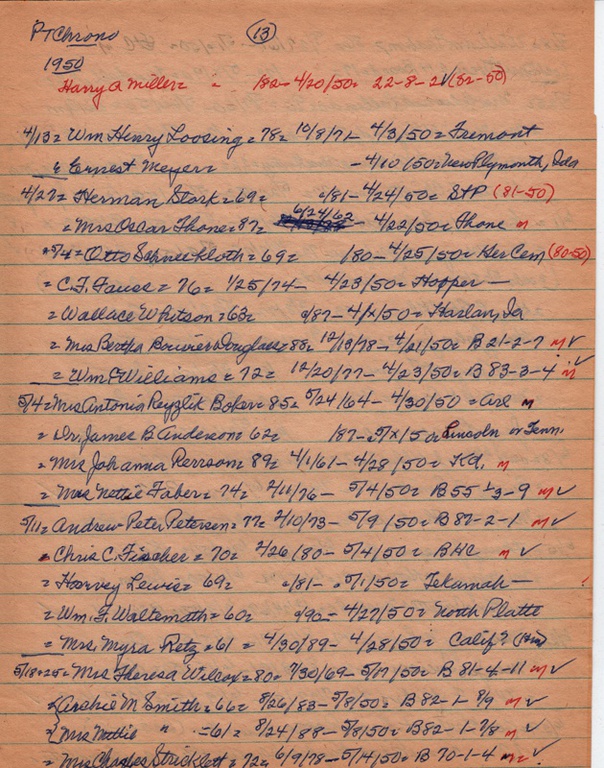 PTChrono (13)
1950
Harry A Miller = " 182 - 4/20/50 = 22-8-2 ✓ (82-50)
4/13 = Wm Henry Loosing = 78 = 10/8/71 - 4/3/50 = Fremont
& Ernest Meyer = - 4/10/50 = New Plymonth, Ida
4/27 = Herman Stork = 69 = /81 - 4/24/50 = StP (81-50)
= Mrs Oscar Thone = 87 = 6/24/62 - 4/22/50 = Thone m
5/4 = Otto Schneekloth = 69 = /80 - 4/25/50 = Ger Cem (80-50)
= C.F. Fause = 76 = 1/25/74 - 4/23/50 = Hooper —
= Wallace Whitson = 63 = /87 - 4/x/50 = Harlan, Ia
= Mrs Bertha Bouvier Douglass = 88 = 12/13/78 - 4/21/50 = B 21-2-7 m ✓
= Wm C Williams = 72 = 12/20/77 - 4/23/50 = B 83-3-4 m ✓
5/4 = Mrs Antonia Reyzlik Boker = 85 = 5/24/64 - 4/30/50 = Arl m
= Dr. James B Anderson 62 = 187 - 5/x/50 = Lincoln or Tenn.
= Mrs Johanna Perrson = 89 = 4/1/61 - 4/28/50 = Kd. m
= Mrs Nettie Faber = 74 = 2/11/76 - 5/4/50 = B 55 ½-3-9 m ✓
5/11 = Andrew Peter Petersen = 77 = 2/10/73 - 5/9/50 = B 87-2-1 m ✓
= Chris C. Fischer = 70 = 2/26/80 - 5/4/50 = BHC m ✓
= Harvey Lewis = 69 = /81 - 5/1/50 = Tekamah —
= Wm. F. Waltemath = 60 = /90 - 4/27/50 = North Platte
= Mrs. Myra Retz = 61 = 4/30/89 - 4/28/50 = Calif?
5/18+25 = Mrs Theresa Wilcox = 80 = 7/30/69 - 5/17/50 = B 81-4-11 m ✓
Archie M Smith = 66 = 8/26/83 - 5/8/50 = B 82-1-8/9 m ✓
Mrs Nettie " = 61 = 8/24/88 - 5/8/50 = B 82-1-7/8 m ✓
= Mrs Charles Stricklett = 72 = 6/9/78 - 5/14/50 = B 70-1-4 m ✓